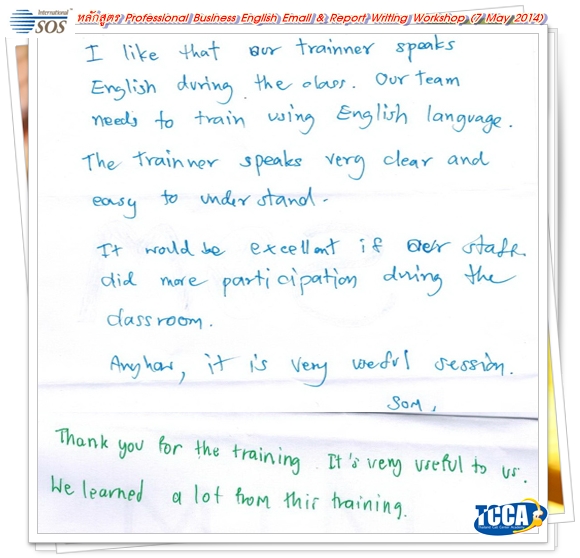 International
SOS
หลักสูตร Professional Business English Email & Report Writing Workshop (7 May 2014)
I like that our trainner speaks
English during the class. Our team
needs to train using English language.
The trainner speaks very clear and
easy to understand.
It would be excellent if our staff
did more participation during the
classroom.
Anyhow, it is very useful session.
Som,
Thank you for the training. It's very useful to us.
We learned a lot from this training.
TCCA